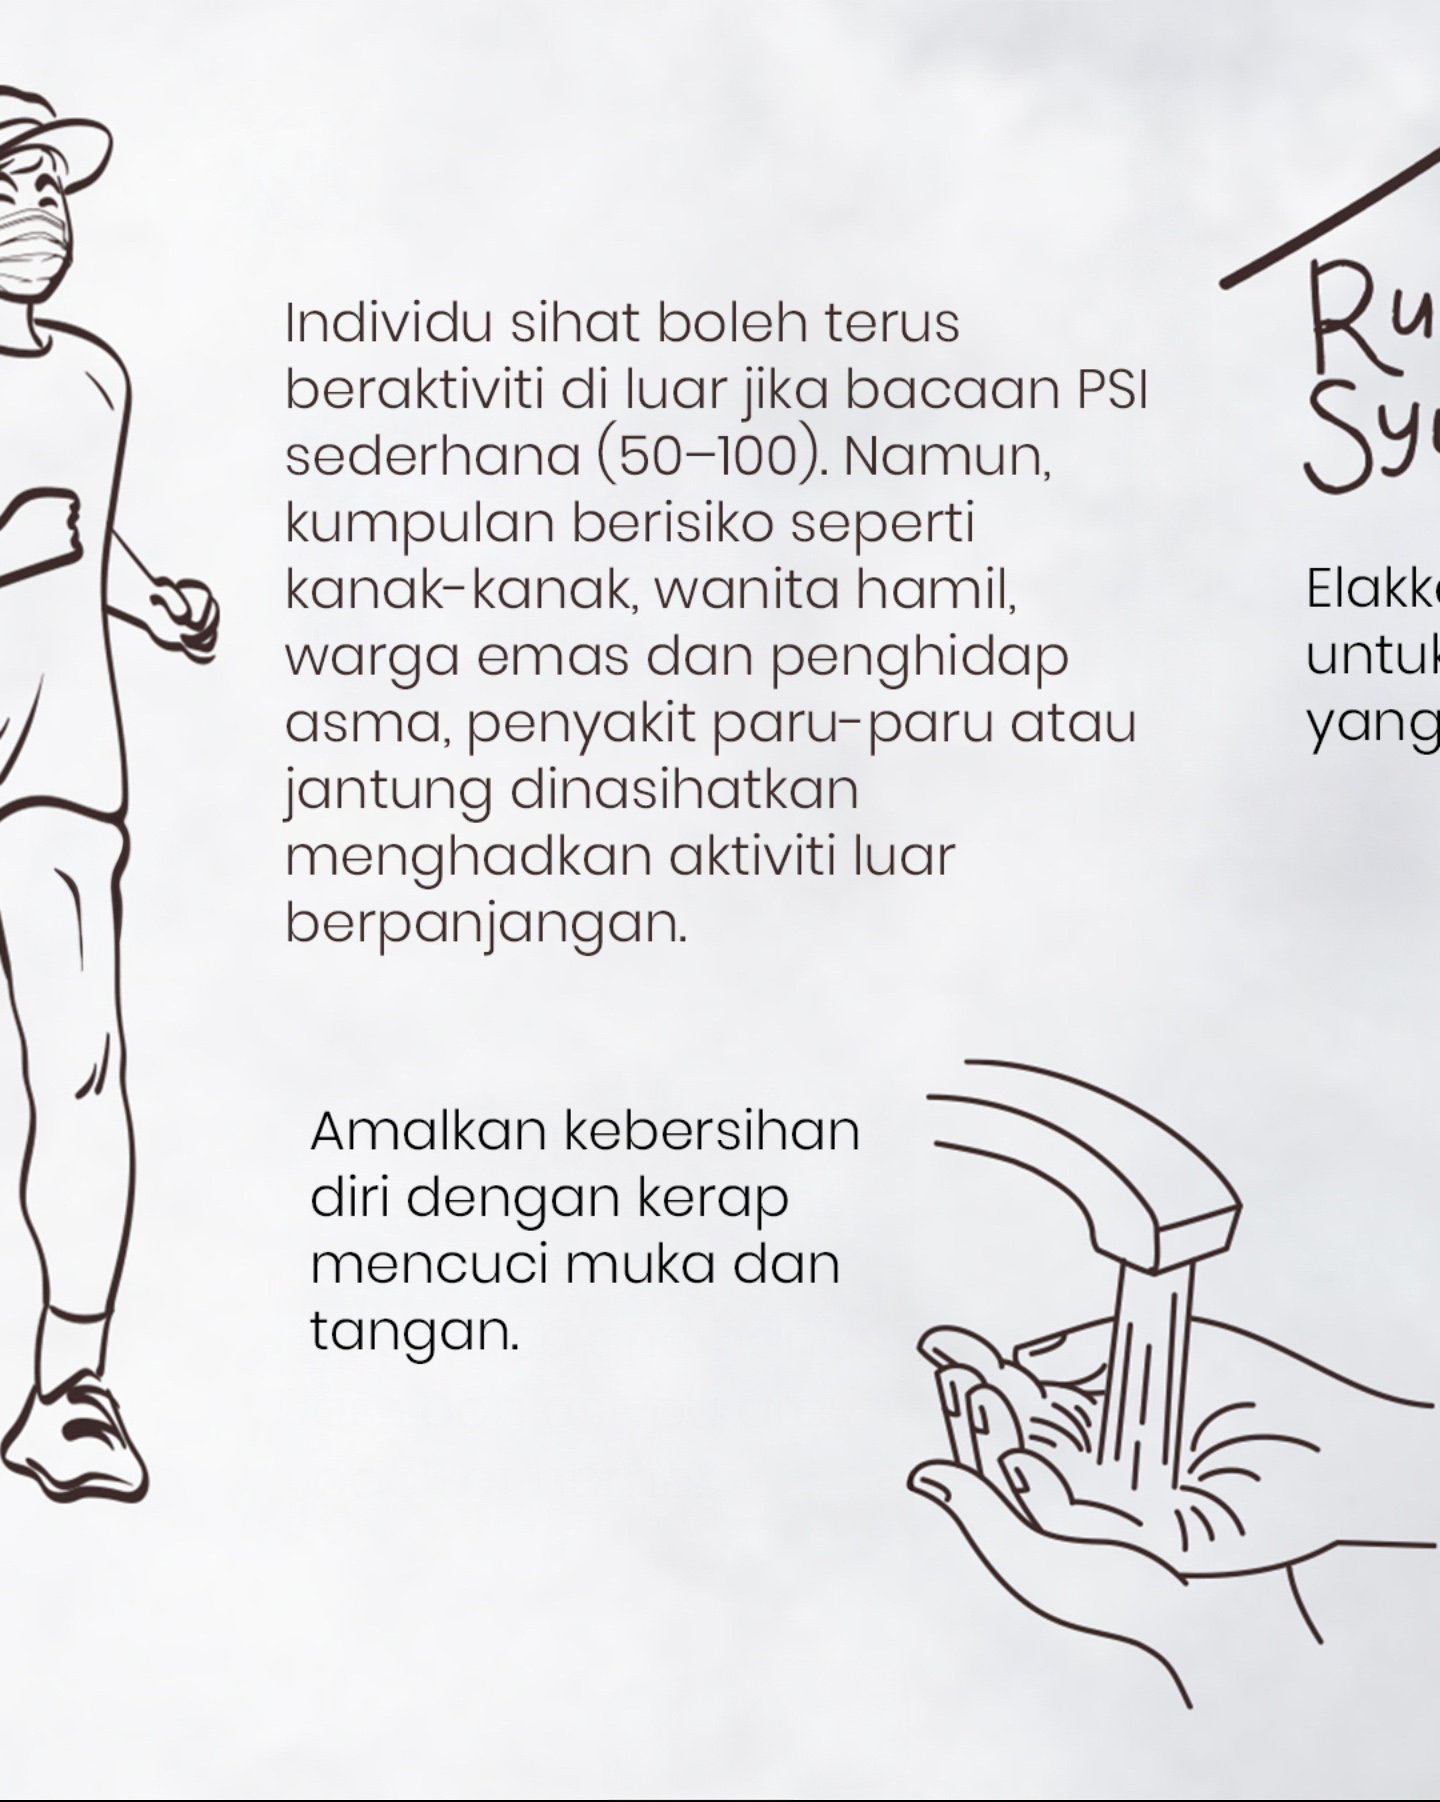 Individu sihat boleh terus
beraktiviti di luar jika bacaan PSI
sederhana (50–100). Namun,
kumpulan berisiko seperti
kanak-kanak, wanita hamil,
warga emas dan penghidap
asma, penyakit paru-paru atau
jantung dinasihatkan
menghadkan aktiviti luar
berpanjangan.
Amalkan kebersihan
diri dengan kerap
mencuci muka dan
tangan.
yang